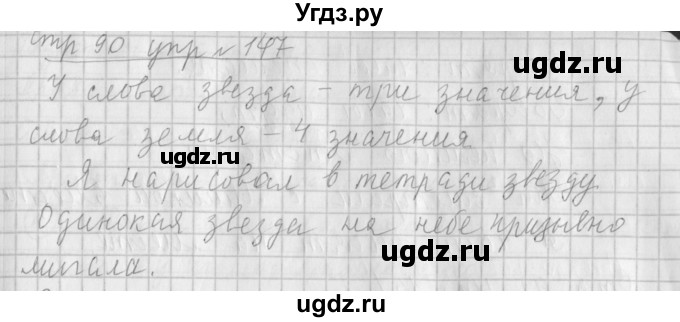 Угдз.ру
стр 90 упр № 147
ugdz.ru
У слова звезда - три значения, у
ugdz.ru
слова земля - 4 значения
ugdz.ru
Я нарисовал в тетради звезду.
Одинокая звезда на небе призывно
ugdz.ru
мигала.
ugdz.ru
ugdz.ru